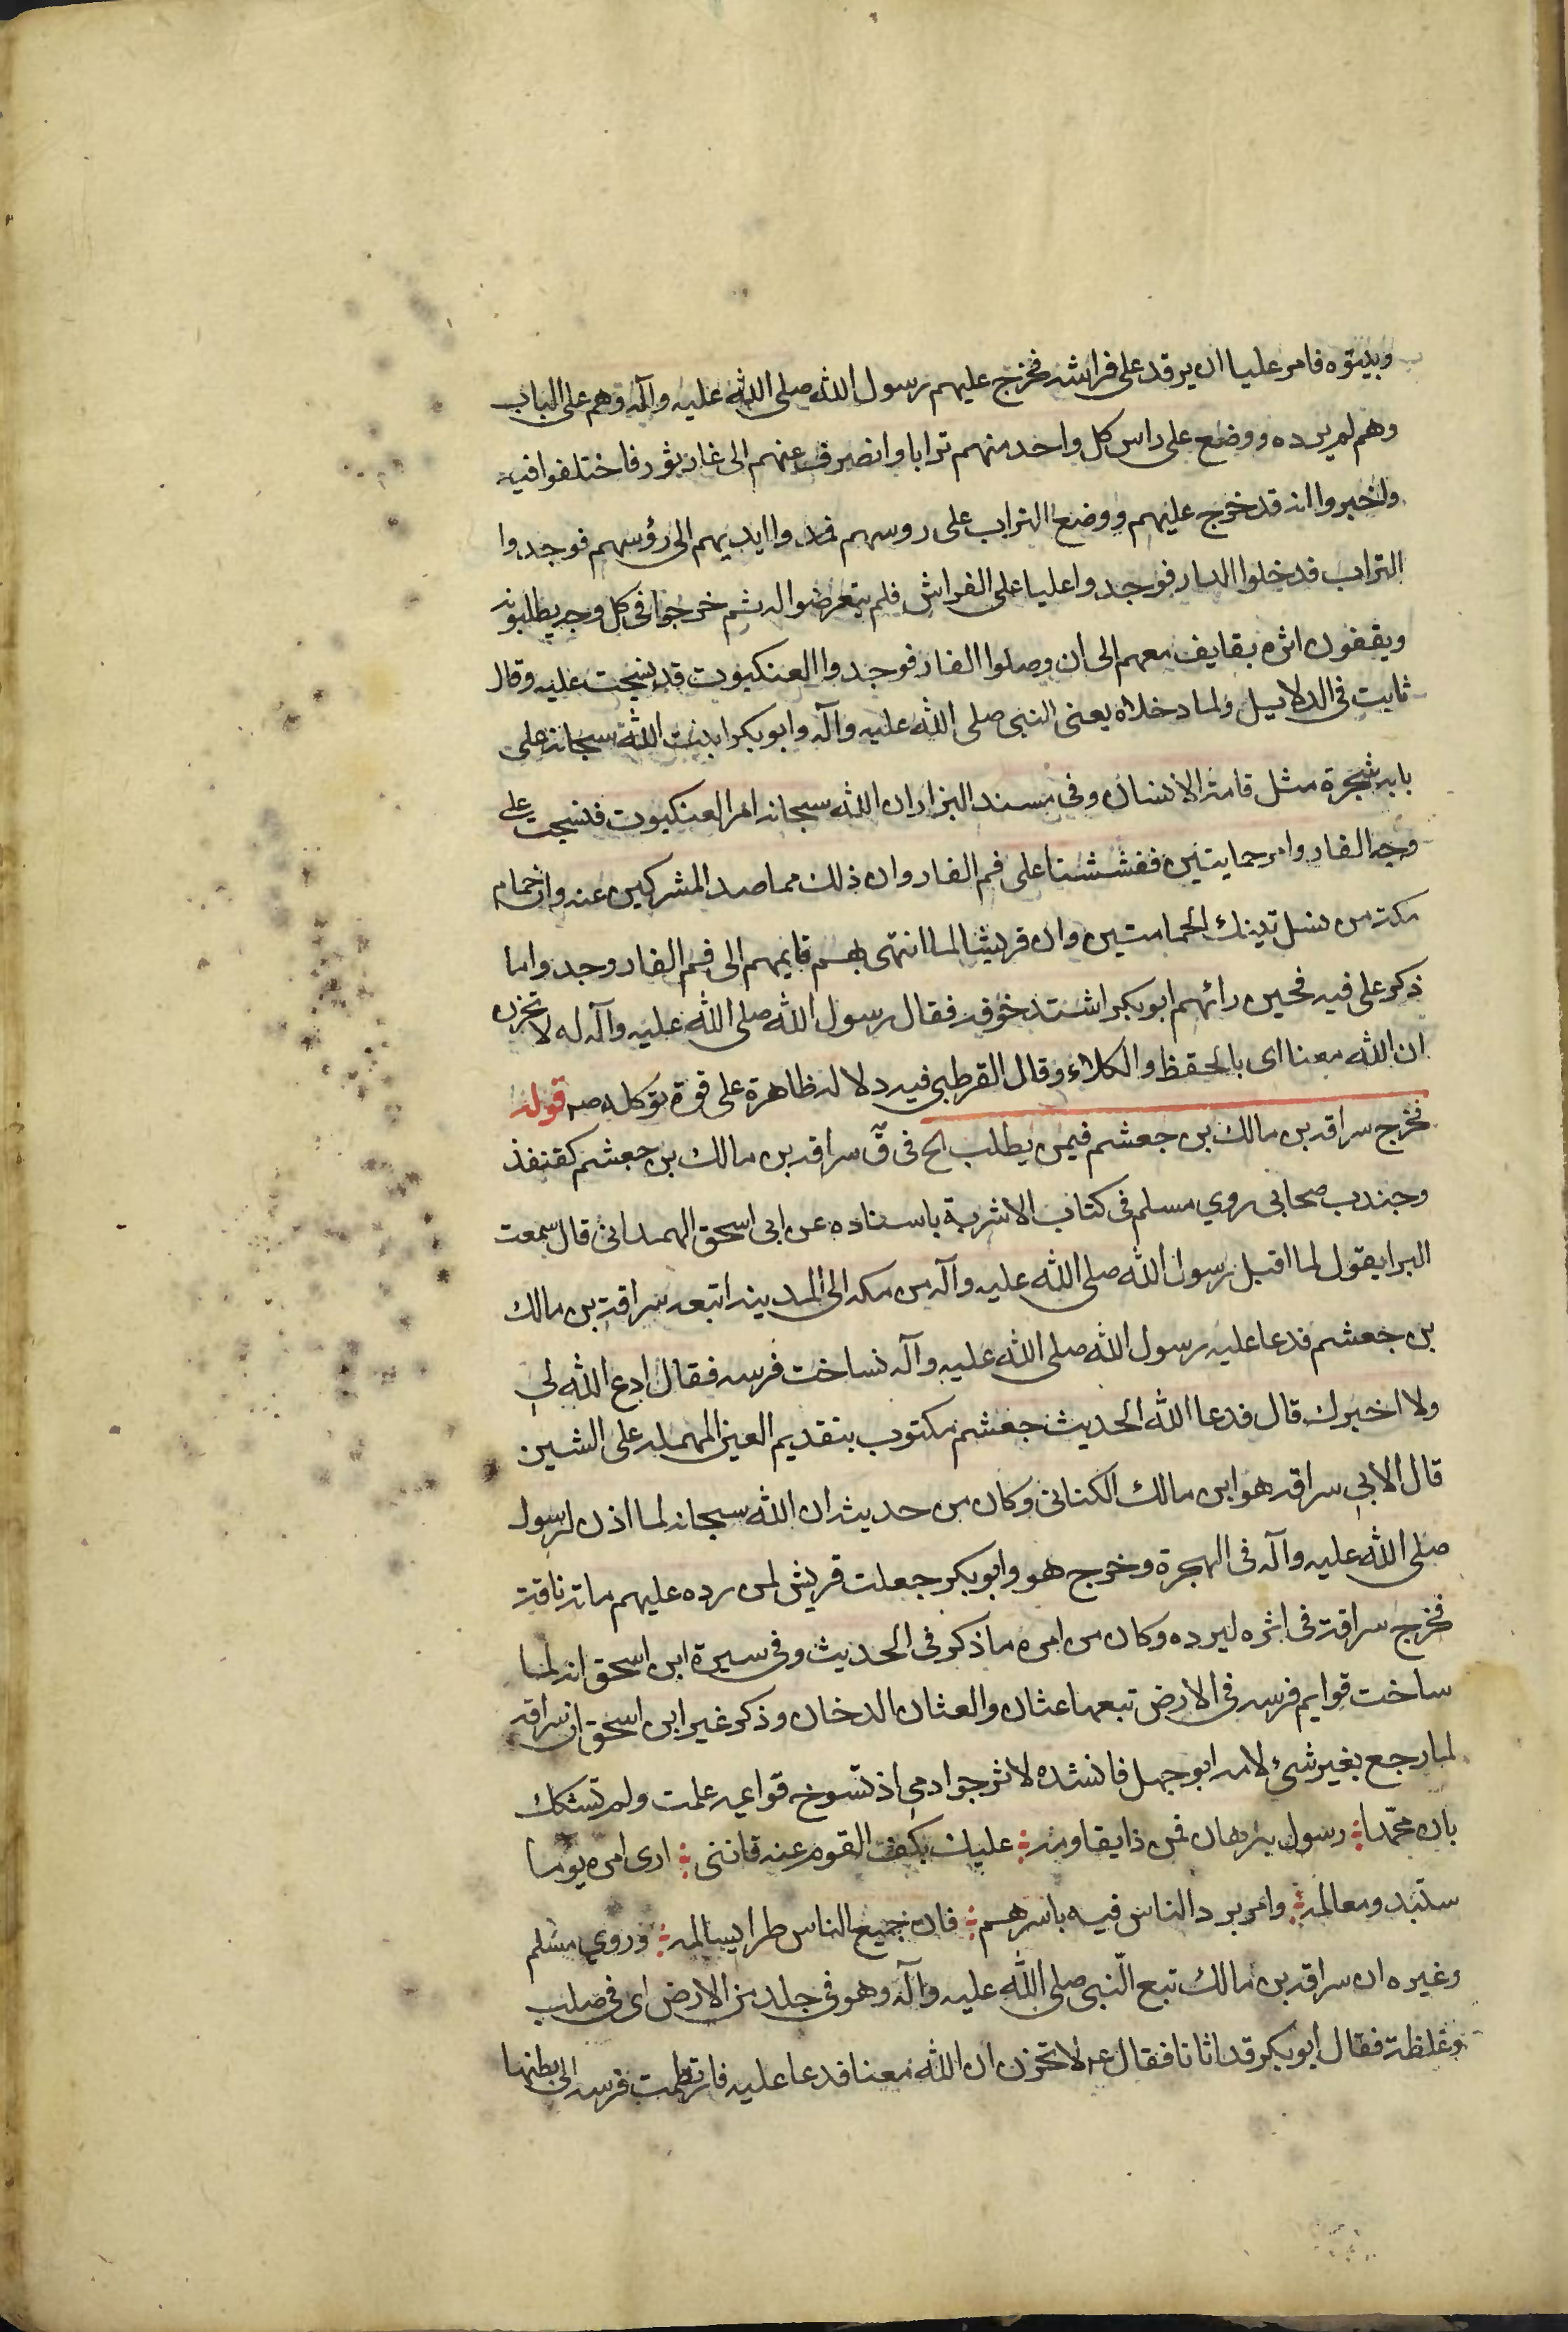 وبيتوه فامر عليا ان يرقد على فراشه فخرج عليهم رسول الله صلى الله عليه وآله وهم على الباب
وهم لم يرده ووضع على راس كل واحد منهم ترابا وانصرف عنهم الى غار بثور فاختلفوا فيه
واخبروا انه قد خرج عليهم ووضع التراب على روسهم فمدوا ايديهم الى رؤسهم فوجدوا
التراب فدخلوا الدار فوجدوا عليا على الفراش فلم يتعرضوا له ثم خرجوا في كل وجه يطلبونه
ويقفون اثره بقايف معهم الى ان وصلوا الغار فوجدوا العنكبوت قد نسجت عليه وقال
ثابت في الدلايل ولما دخلاه يعنى النبى صلى الله عليه وآله وابوبكر ابنت الله سبحانه على
بابه شجرة مثل قامة الانسان وفى مسند البزار ان الله سبحانه امر العنكبوت فنسجت على
وجه الغار وامر حمايتين ففششتا على فم الغار وان ذلك مما صد المشركين عنه وان حمام
مكة من نسل تينك الحمامتين وان قريشا لما انتهى بهم قايمهم الى فم الغار وجدوا ما
ذكر على فيه فحين رائهم ابوبكر اشتد خوفه فقال رسول الله صلى الله عليه وآله له لا تحزن
ان الله معنا اى بالحفظ والكلاء وقال القرطبى فيه دلاله ظاهرة على قوة توكله صم قوله
فخرج سراقه بن مالك بن جعشم فيمن يطلب الخ فى ق سراقه بن مالك بن جعشم كقنفذ
وجندب صحابى روي مسلم فى كتاب الاشربة باسناده عن ابى اسحق الهمدانى قال سمعت
البرا يقول لما اقبل رسول الله صلى الله عليه وآله من مكه الى المدينه اتبعه سراقة بن مالك
بن جعشم فدعا عليه رسول الله صلى الله عليه وآله فساخت فرسه فقال ادع الله لي
ولا اخبرك قال فدعا الله الحديث جعشم مكتوب بتقديم العين المهمله على الشين
قال الابي سراقه هو ابن مالك الكنانى وكان من حديثه ان الله سبحانه لما اذن لرسول
صلى الله عليه وآله فى الهجرة وخرج هو وابوبكر جعلت قريش لمن رده عليهم ماته ناقة
فخرج سراقة فى اثره ليرده وكان من امره ما ذكر فى الحديث وفى سيرة ابن اسحق انه لما
ساخت قوايم فرسه فى الارض تبعها عثان والعثان الدخان وذكر غير ابن اسحق ان سراقه
لما رجع بغير شئ لامه ابوجهل فانشده لاثر جوادمى اذ تسوخ قوايمه علمت ولم تشكك
بان محمدا ⁝ رسول ببرهان فمن ذا يقاومه ⁝ عليك بكف القوم عنه فاننى ⁝ ارى امره يوما
ستبدو معالمه ⁝ وامر يرد الناس فيه باسرهم ⁝ فان جميع الناس طرا يسالمه ⁝ وروي مسلم
وغيره ان سراقه بن مالك تبع النبى صلى الله عليه وآله وهو فى جلد من الارض اى فى صلب
وغلظة فقال ابوبكر قد اتانا فقال عم لا تحزن ان الله معنا فدعا عليه فارتطمت فرسه الى بطنها